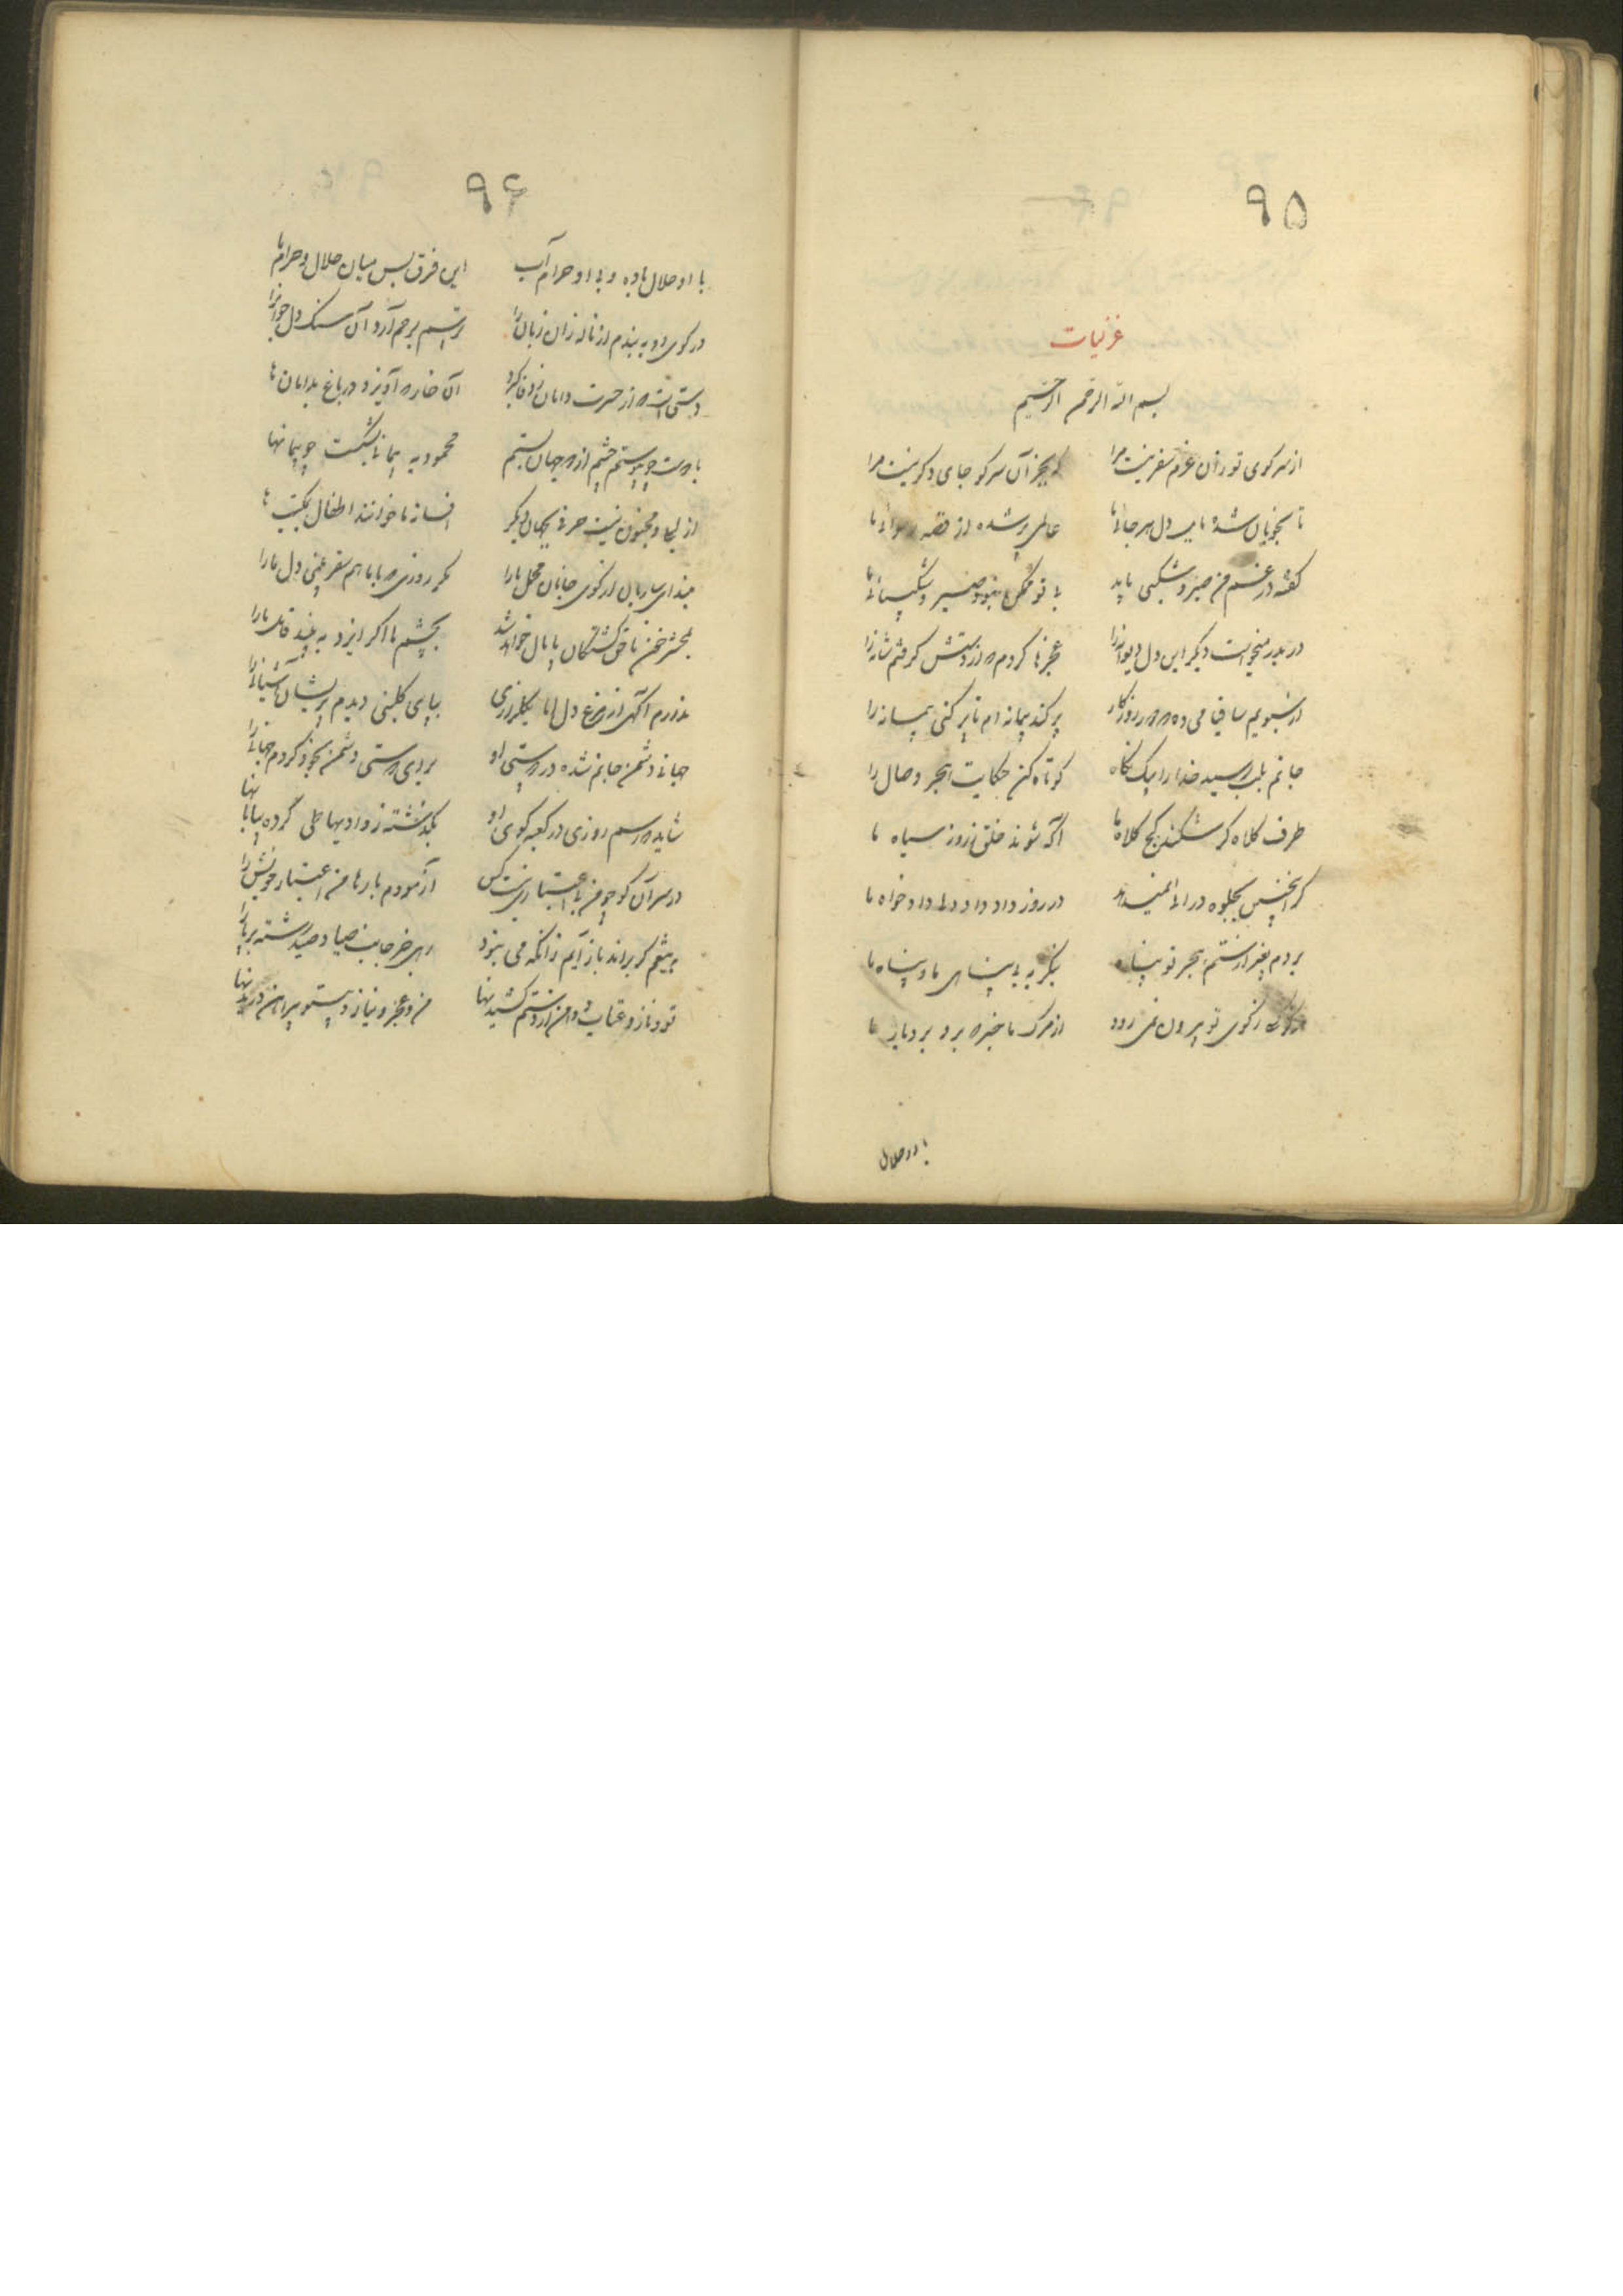 ۹۵
غزلیات
بسم الله الرحمن الرحیم
از سر کوی تو زان عزم سفر نیست مرا که بجز آن سر کو جای دکر نیست مرا
تا بخوبان شده مایل دل هر جائی ما عالمی پر شده از قصه رسوائی ما
کفته در غم من صبر و شکیبی باید بی تو ممکن نبود صبر و شکیبائی ما
در بدر میخواست دیگر این دل دیوانه را عجزها کردم که از دستش کرفتم شانه را
ساقی می ده که روزکار پر کند پیمانه ام تا پر کنی پیمانه را
جانم بلب رسید خدا را بیک نکاه کوتاه کن حکایت هجر و صال را
طرف کلاه کر شکند کج کلاه ما آگه شوند خلق ز روز سیاه ما
کر اینچنین بجلوه درائی در روز داد داد دل داد خواه ما
بردم هجر تو پناه بنکر به بی پناهی ما و پناه ما
ز کوی تو بیرون نمی رود از مرک ما خبر که برد بر دیار ما
با او حلال
۹۶
با او حلال باده و بی او حرام آب این فرق بس میان حلال و حرام ما
در کوی او به بندم از ناله زان زبان را ترسم برحم آرد آن سنک دل جوانرا
دستی که از حسرت دامان تو آن خار که آویزد در باغ بدامان ها
با دوست چو پیوستم چشم از همه جهان بستم محمود به پیمانی بشکست چو پیمانها
از لیلی و مجنون نیست حرفی بجهان دیکر افسانه ما خوانند اطفال بمکتب ها
مبند ای ساربان از کوی جانان محمل ما را که روزی با ما هم سفر بینی دل ما را
بمحشر خون ناحق کشتکان پامال خواهد شد بچشم ما اکر ایزد به بیند قاتل ما را
ندارم آکهی از مرغ دل اما بکلزاری بپای کلبنی دیدم پریشان آشیانی را
جهانی دشمن جانم شده در دوستی او برای دوستی دشمن بخود کردم جهانی را
شاید که رسم روزی در کعبه کوی او بکذشته ز وادیها طی کرده بیابانها
در سر آن کو چو من بی اعتباری نیست کس آزمودم بارها من اعتبار خویش را
کر براند باز آیم زانکه می نبود رهی جز جانب صیاد صید رشته بر پا را
تو و ناز و عتاب و دامن از دستم کشیدنها من و عجز و نیاز و پیراهن دریدنها